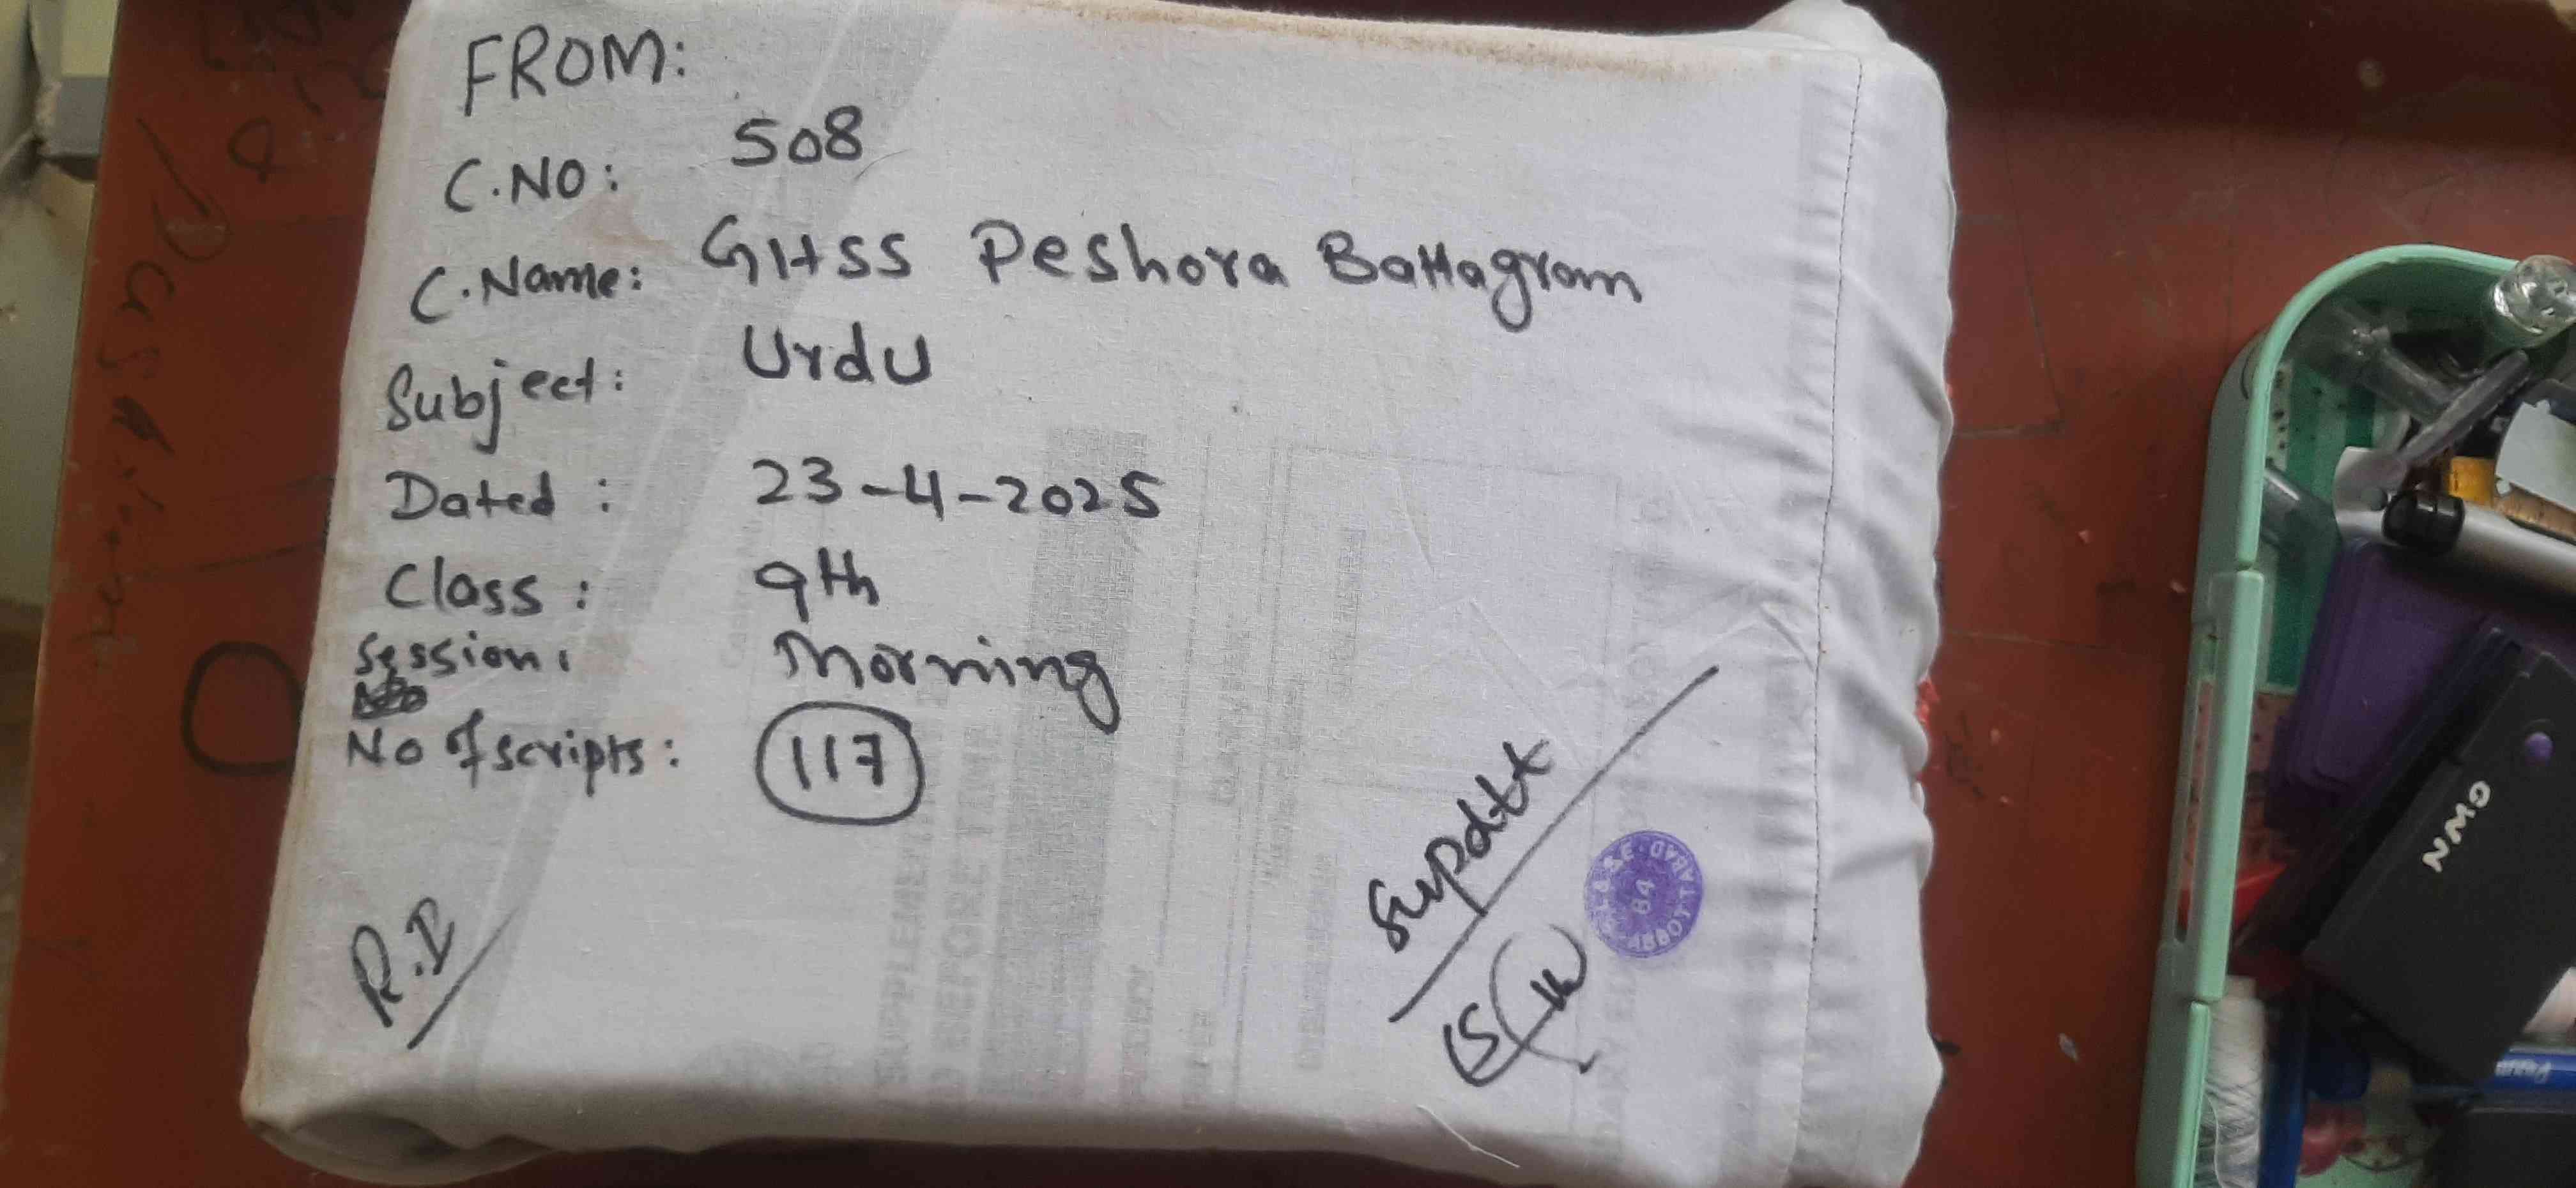 FROM:
C.NO: 508
C.Name: GHSS Peshora Battagram
Subject: Urdu
Dated: 23-4-2025
Class: 9th
Session: Morning
No of scripts: 117
R.I
Supdtt
84
ABBOTTABAD
OWN